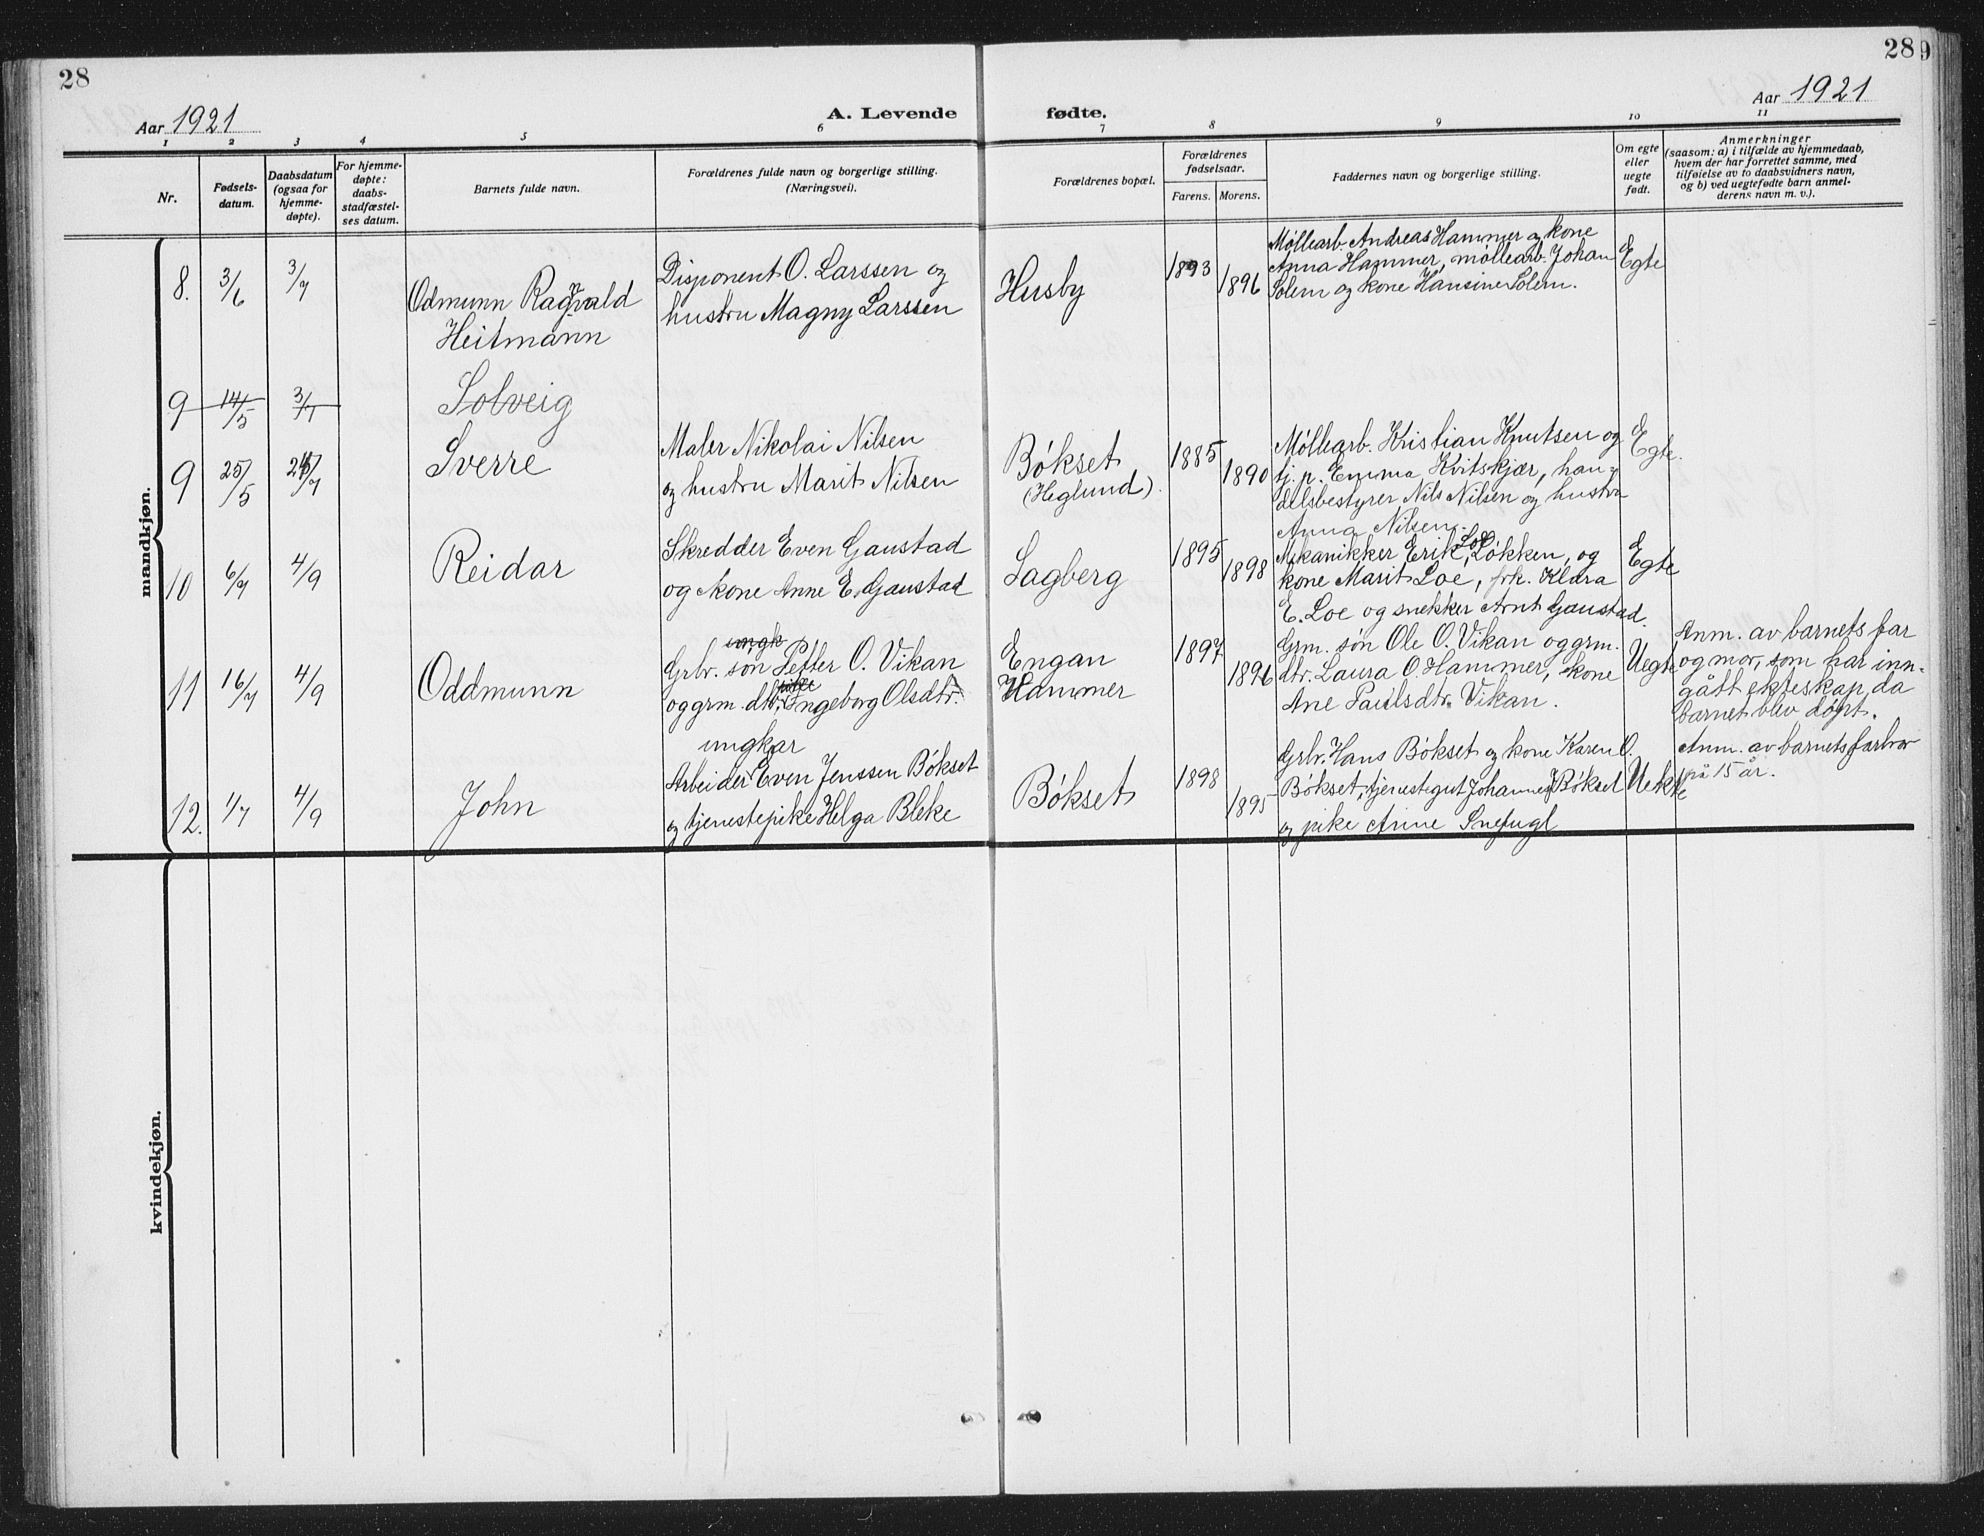 28
28 9
Aar 1921
A. Levende fødte.
Aar 1921
1 2 3 4 5 6 7 8 9 10 11
Nr.
Fødsels-
datum.
Daabsdatum
(ogsaa for
hjemme-
døpte).
For hjemme-
døpte:
daabs-
stadfæstel-
ses datum.
Barnets fulde navn.
Forældrenes fulde navn og borgerlige stilling.
(Næringsvei).
Forældrenes bopæl.
Forældrenes
fødselsaar.
Farens. Morens.
Faddernes navn og borgerlige stilling.
Om egte
eller
uegte
født.
Anmerkninger
(saasom: a) i tilfælde av hjemmedaab,
hvem der har forrettet samme, med
tilføielse av to daabsvidners navn,
og b) ved uegtefødte barn anmel-
derens navn m. v.).
mandkjøn.
8. 3/6 3/7
Odmunn Ragnvald
Heitmann
Disponent O. Larssen og
hustru Magny Larssen
Husby
1893
1896
Møllearb. Andreas Hammer og kone
Anna Hammer, møllearb. Johan
Solem og kone Hansine Solem.
Egte
9 14/5 3/7
Solveig
9 25/5 24/7
Sverre
Maler Nikolai Nilsen
og hustru Marit Nilsen
Bøkset
(Heglund).
1885
1890
Møllearb. Kristian Knutsen og
tj. p. Emma Kvitskjær, han-
delsbestyrer Nils Nilsen og hustru
Anna Nilsen.
Egte.
10 6/7 4/9
Reidar
Skredder Even Gaustad
og kone Anne E. Gaustad
Sagberg
1895
1898
Mekanikker Erik Loe, Løkken, og
kone Marit Loe, frk. Klara
E. Loe og snekker Arnt Gaustad.
Egte
11 16/7 4/9
Oddmunn
ungk
Grbr. søn Petter O. Vikan
pike
og grm. dtr. Ingeborg Olsdtr.
Engan
Hammer
1897
1896
Grm. søn Ole O. Vikan og grm.
dtr. Laura O. Hammer, kone
Ane Paulsdtr. Vikan.
Uegte
Anm. av barnets far
og mor, som har inn-
gått ekteskap, da
barnet blev døpt.
12. 1/7 4/9
John
ungkar
Arbeider Even Jenssen Bøkset
og tjenestepike Helga Bleke
Bøkset
1898
1895
Grbr. Hans Bøkset og kone Karen O.
Bøkset, tjenestegut Johannes J. Bøkset
og pike Anne Snefugl
Uekte
Anm. av barnets farbror
på 15 år.
kvindekjøn.